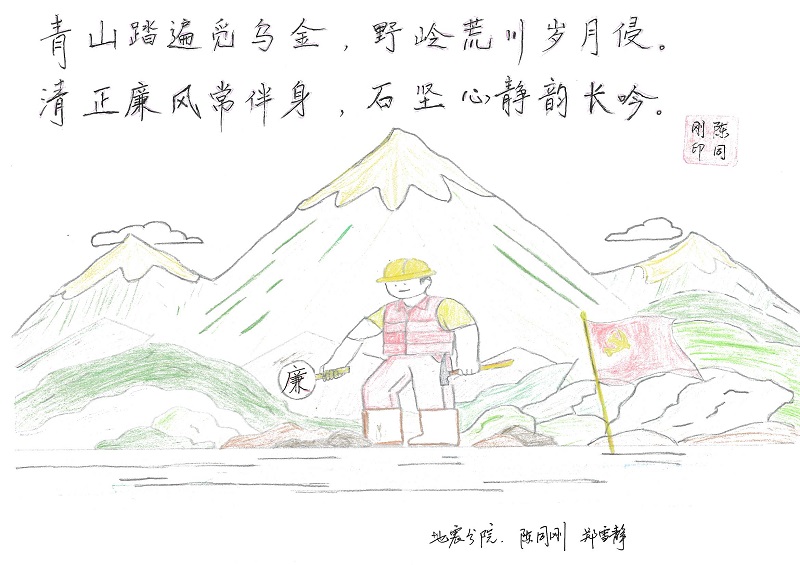 青山踏遍觅乌金，野岭荒川岁月侵。
清正廉风常伴身，石坚心静韵长吟。
陈同
刚印
廉
地震分院. 陈同刚 郑雪静